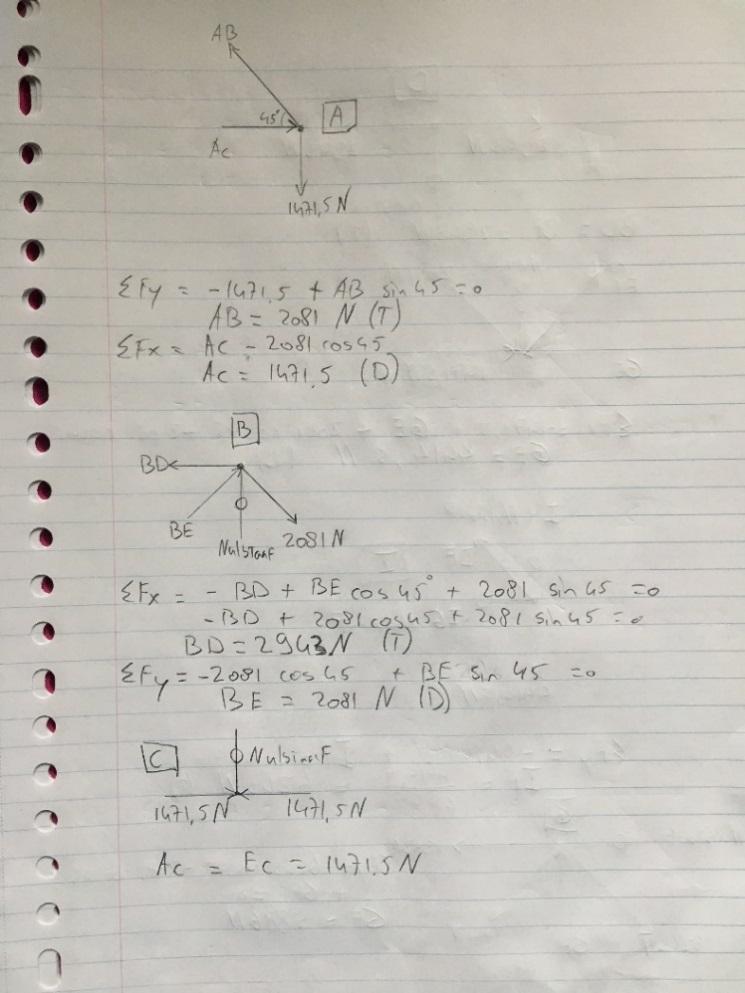 AB
45°
A
Ac
1471,5 N
ΣFy = -1471,5 + AB sin 45 = 0
AB = 2081 N (T)
ΣFx = Ac - 2081 cos 45
Ac = 1471,5 (D)
B
BD
BE
Nulstaaf
2081 N
ΣFx = - BD + BE cos 45° + 2081 sin 45 = 0
- BD + 2081 cos 45 + 2081 sin 45 = 0
BD = 2943 N (T)
ΣFy = -2081 cos 45 + BE sin 45 = 0
BE = 2081 N (D)
C
Nulstaaf
1471,5 N 1471,5 N
Ac = Ec = 1471,5 N